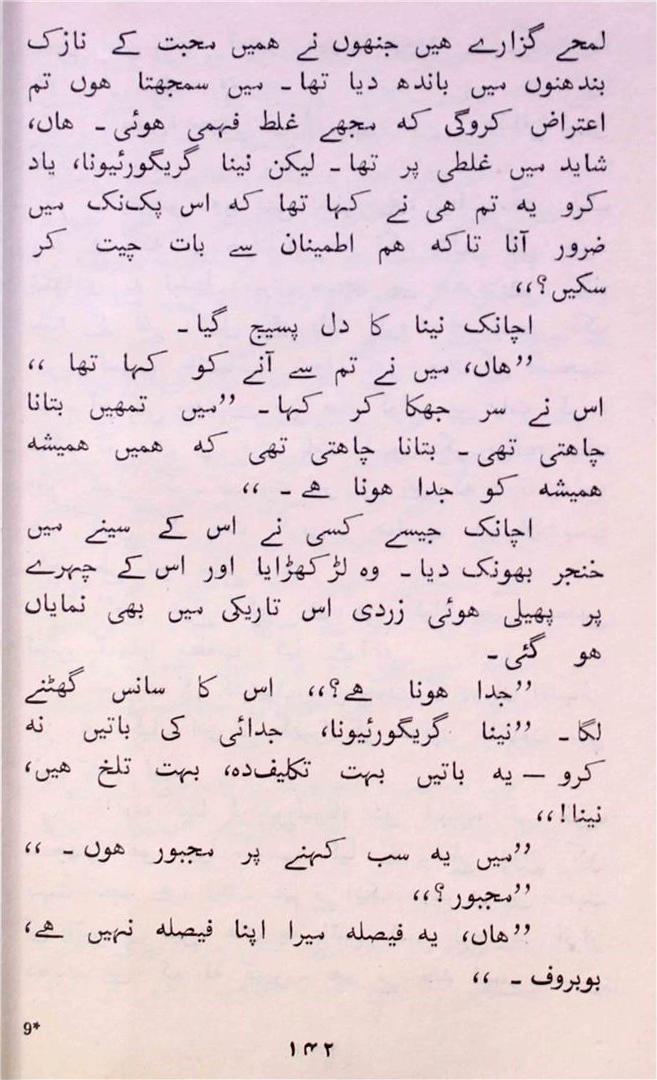 لمحے گزارے ھیں جنھوں نے ھمیں محبت کے نازک
بندھنوں میں باندھ دیا تھا۔ میں سمجھتا ھوں تم
اعتراض کروگی که مجھے غلط فہمی ھوئی۔ ھاں،
شاید میں غلطی پر تھا۔ لیکن نینا گریگورئیونا، یاد
کرو یه تم ھی نے کہا تھا که اس پکنک میں
ضرور آنا تاکه ھم اطمینان سے بات چیت کر
سکیں؟،،
اچانک نینا کا دل پسیج گیا۔
’’ھاں، میں نے تم سے آنے کو کہا تھا ،،
اس نے سر جھکا کر کہا۔ ’’میں تمھیں بتانا
چاھتی تھی۔ بتانا چاھتی تھی که ھمیں ھمیشه
ھمیشه کو جدا ھونا ھے۔ ،،
اچانک جیسے کسی نے اس کے سینے میں
خنجر بھونک دیا۔ وہ لڑکھڑایا اور اس کے چہرے
پر پھیلی ھوئی زردی اس تاریکی میں بھی نمایاں
ھو گئی۔
’’جدا ھونا ھے؟،، اس کا سانس گھٹنے
لگا۔ ’’نینا گریگورئیونا، جدائی کی باتیں نه
کرو — یه باتیں بہت تکلیفدہ، بہت تلخ ھیں،
نینا!،،
’’میں یه سب کہنے پر مجبور ھوں۔ ،،
’’مجبور؟،،
’’ھاں، یه فیصله میرا اپنا فیصله نہیں ھے،
بوبروف۔ ،،
9*
۱۳۲